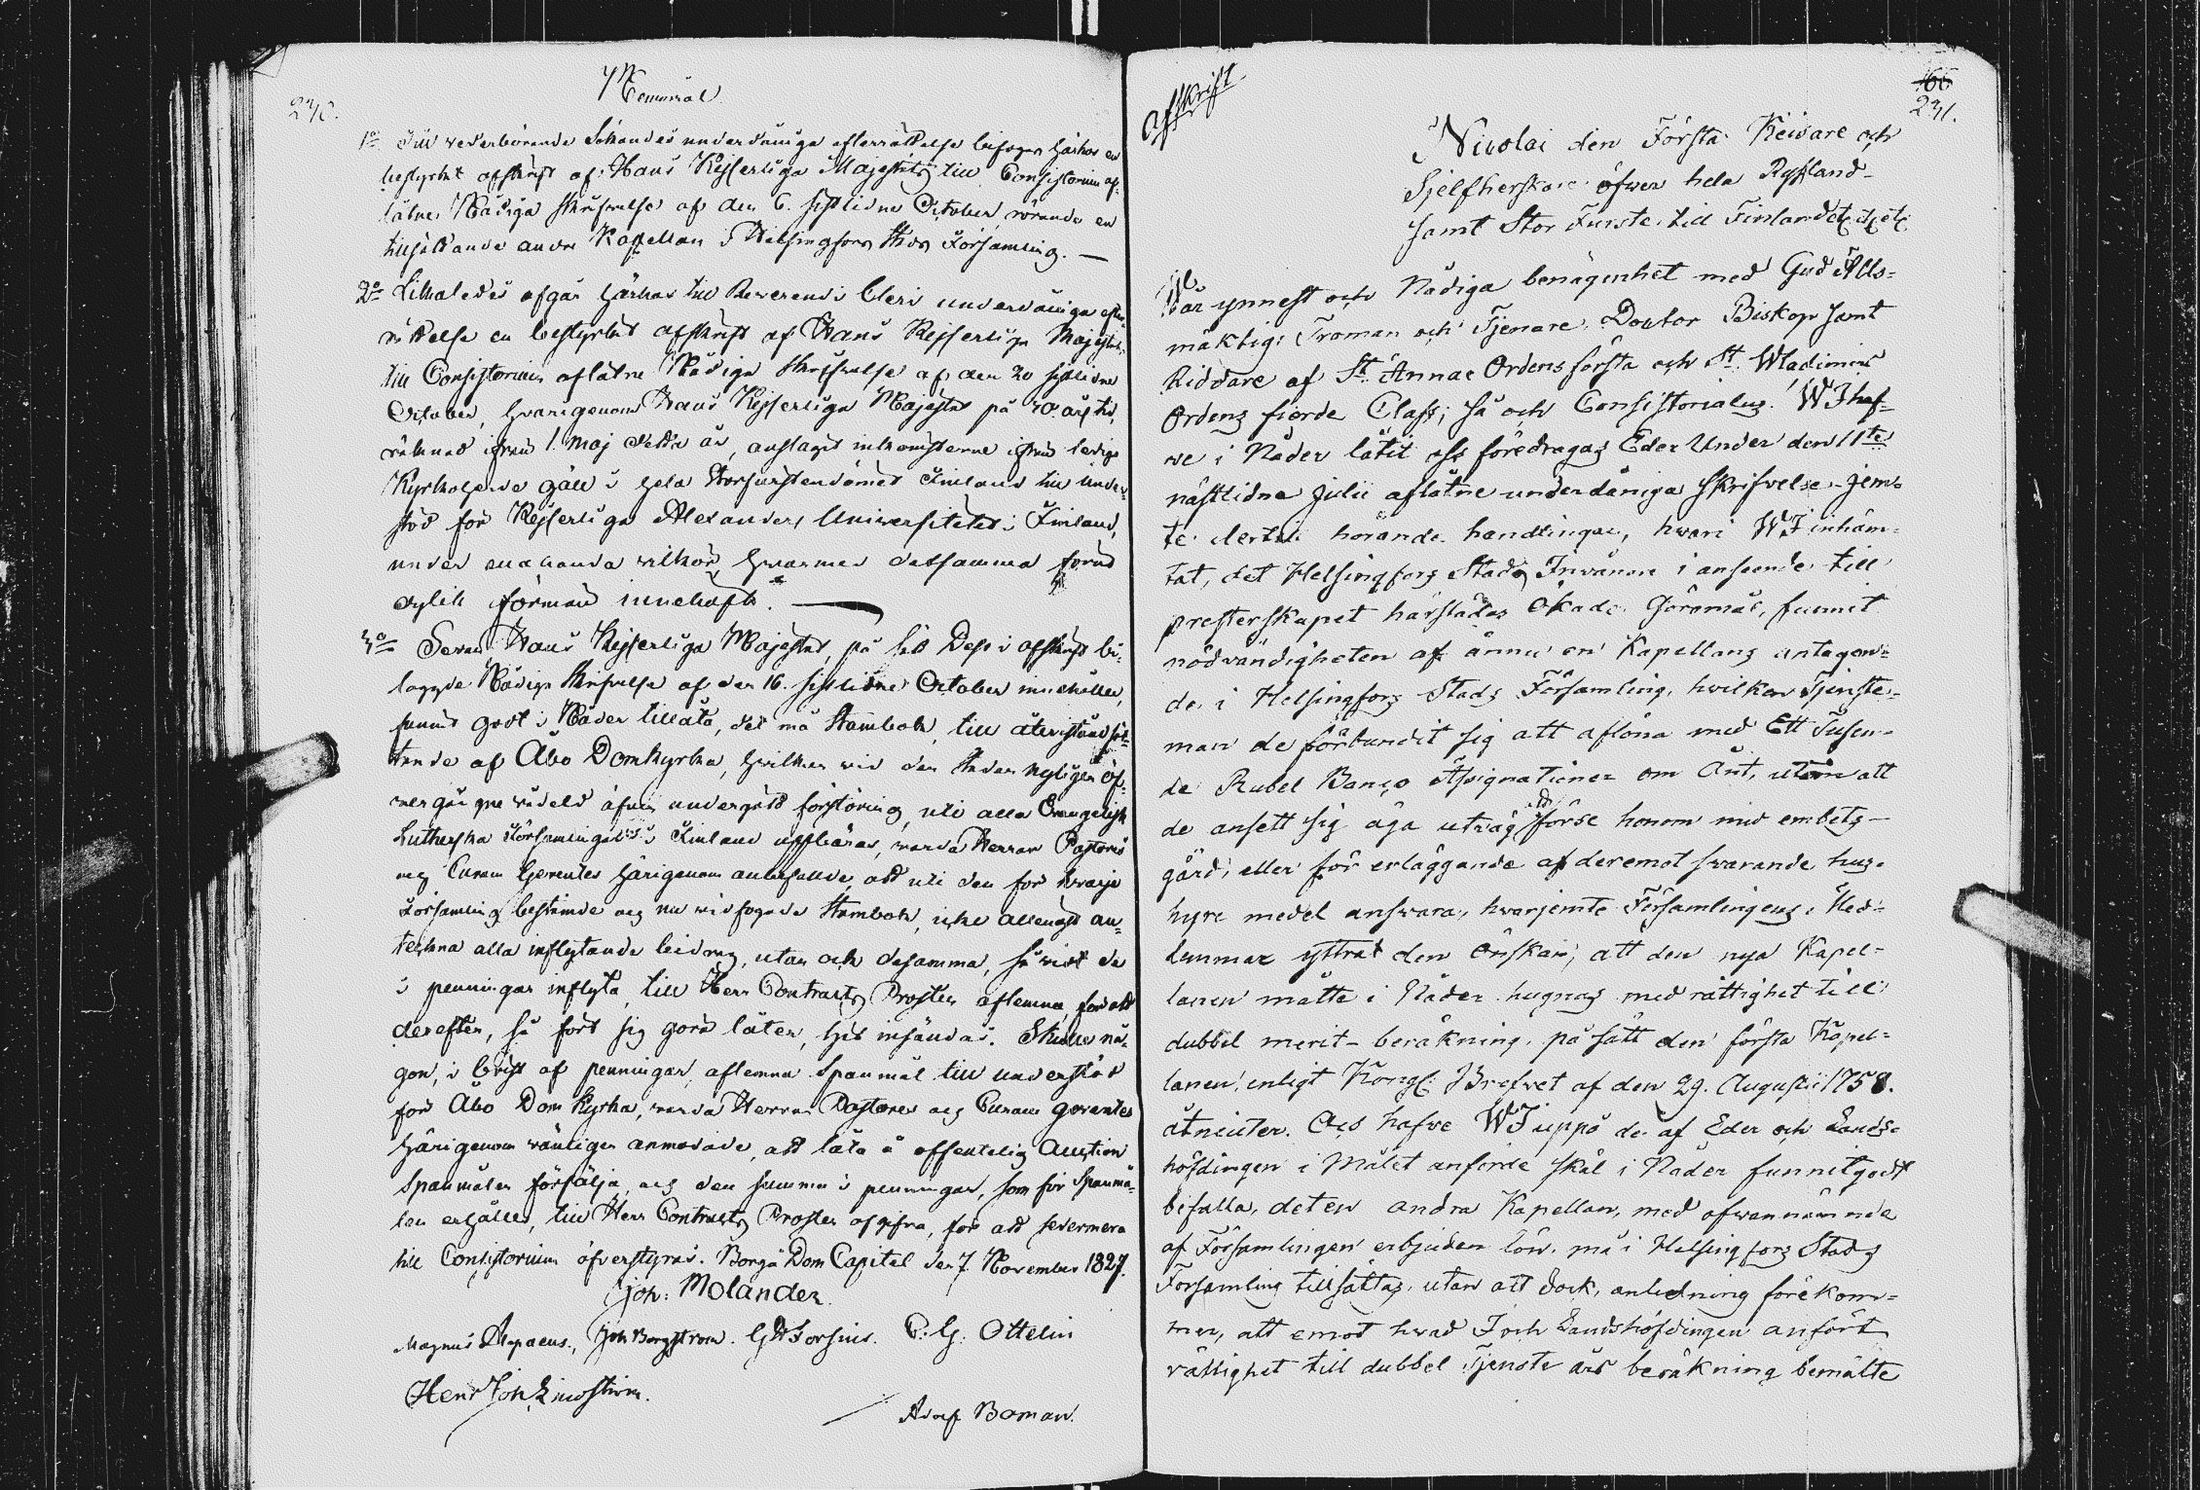 230.
Memorial.
1o Till vederbörande Sökandes underdåniga efterrättelse bifogas härhos en
bestyrkt afskrift af Hans Kejserliga Majestäts till Consistorium af-
låtne Nådiga skrifvelse af den 6. sistlidne October, rörande en
tillsättande andre Kapellan i Helsingfors Stads Församling. —
2o Likaledes afgår härhos till Reverendi Cleri underdåniga efter-
rättelse en bestyrkt afskrift af Hans Kejserliga Majestäts
till Consistorium aflåtne Nådiga skrifvelse af den 20 sistlidne
October, hvarigenom Hans Kejserliga Majestät på års tid,
räknad ifrån 1. Maj detta år, anslagit inkomsterne ifrån lediga
Kyrkoherde gäll i hela Storfurstendömet Finland till under-
stöd för Kejserliga Alexanders Universitetet i Finland,
under enahanda vilkor, hvarmed detsamma förut
dylik förmån innehaft. —
3o Sedan Hans Kejserliga Majestät, på sätt Dess i afskrift bi-
lagde Nådiga skrifvelse af den 16. sistlidne October innehåller,
funnit godt i Nåder tillåta, det må Stambok, till återiståndsät-
tande af Åbo Domkyrka, hvilken vid den Staden nyligen öf-
vergångne vådeld äfven undergått förstöring, uti alla Evangelisk
Lutherska Församlingar i Finland uppbäras, varda Herrar Pastores
och Curam Gerentes härigenom anbefallde, att uti den för hvarje
Församling bestämde och nu vidfogade Stambok, icke allenast an-
teckna alla inflytande bidrag, utan och desamma, så vidt de
i penningar inflyta, till Herr Contracts Prosten aflemna, för att
derefter, så fort sig göra låter, hit insändas. Skulle nå-
gon, i brist af penningar, aflemna Spanmål till understöd
för Åbo Dom Kyrka, varda Herrar Pastores och Curam gerentes
härigenom vänligen anmodade, att låta å offentelig Auction
Spanmålen försälja, och den summa i penningar, som för Spanmå-
len erhålles, till Herr Contracts Prosten afgifva, för att sedermera
till Consistorium öfverstyras. Borgå Dom Capitel den 7 November 1827.
Joh: Molander.
Magnus Alopaeus., Joh Borgström. G W Forsius. C. G. Ottelin
Henr Joh. Lindström.
Adolf Boman.
Afskrift
165
231.
Nicolai den Första Keisare och
Sjelfherskare öfwer hela Ryssland
samt Stor Furste till Finland etc etc etc
Wår ynnest och Nådiga benägenhet med Gud Alls-
mäktig: Troman och Tjenare, Doctor Biskop samt
Riddare af St. Annae Ordens första och St. Wladimirs
Ordens fjerde Class; så och Consistorialus! WI haf-
we i Nåder låtit oss föredragas Eder Under den 11te
nästlidne Julii aflåtne underdåniga skrifwelse jem-
te dertill hörande handlingar, hwari WI inhäm-
tat, det Helsingfors Stads Inwånare i anseende till
presterskapet härstädes ökade Göromål, funnit
nödwändigheten af ännu en Kapellans antagan-
de i Helsingfors Stads Församling, hwilken Tjenste-
man de förbundit sig att aflöna med Ett Tusen-
de Rubel Banco Assignationer om Året, utom att
de ansett sig äga utwäg att förse honom med embets-
gård, eller för erläggande af deremot swarande hus-
hyre medel answara, hwarjemte Församlingens Med-
lemmar yttrat den önskan, att den nya Kapel-
lanen måtte i Nåder hugnas med rättighet till
dubbel merit-beräkning, på sätt den första Kapel-
lanen, enligt Kongl. Brefwet af den 29. Augustii 1758.
åtnjuter. Och hafwe WI uppå de af Eder och Lands-
höfdingen i Målet anförde skäl i Nåder funnit godt
befalla, det en andra Kapellan, med ofwannämnde
af Församlingen erbjuden lön, må i Helsingfors Stads
Församling tillsättas, utan att dock, anledning förekom-
mer, att emot hwad I och Landshöfdingen anfört
rättighet till dubbel Tjenste års beräkning bemälte